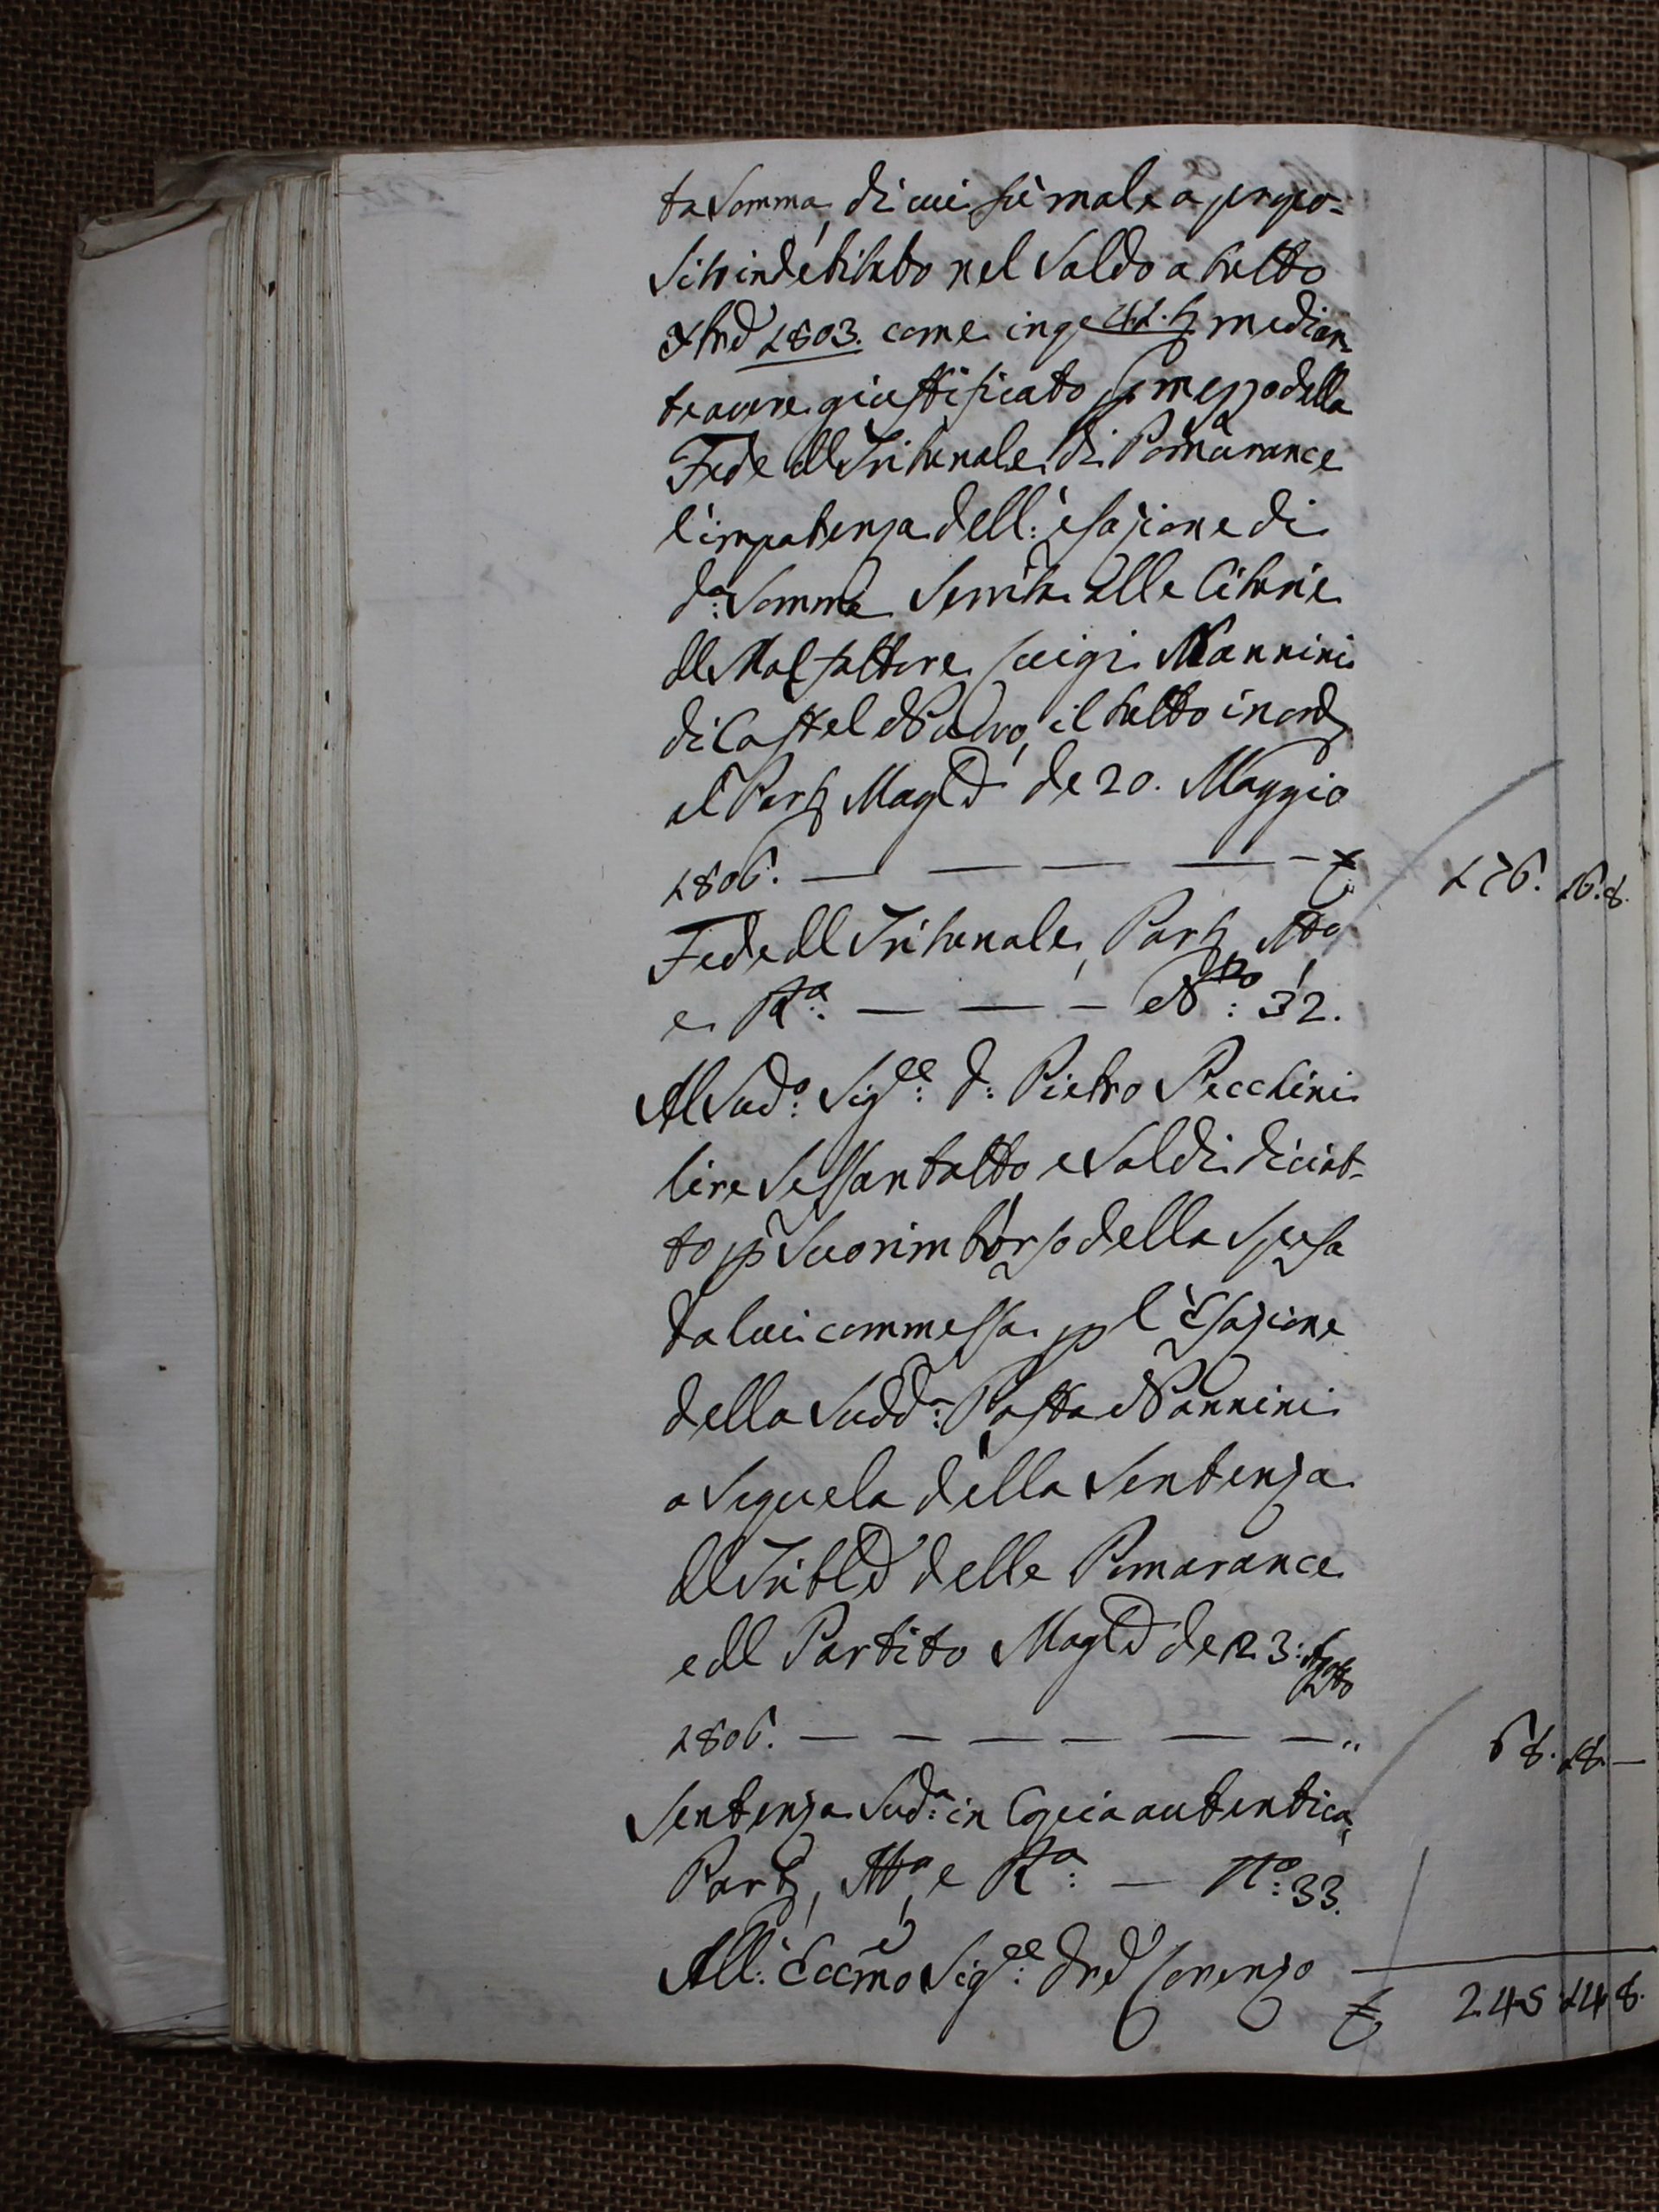 ta Somma, di cui fù male a propo-
Sito indebitato nel Saldo a tutto
Xbre 1803. come in q 41. t median-
te avere giustificato p mezzo della
Fede dl Tribunale di Pomarance
l'impotenza dell: esazione di
da: Somma Servita alle Citarie
dl Malfattore Luigi Nannini
di Castel Nuovo, il tutto in ord
al Part Magle de 20. Maggio
1806. — — — — £ 176. 16. 8.
Fede dl Tribunale, Part, Mto
e Rta: — — — No: 32.
Al Sudo: Sigre: D: Pietro Pecchini
lire Sessantotto e Soldi diciot-
to p Suo rimborso della Spesa
da lui commessa p l'Esazione
della Sudda: Posta Nannini
a Seguela della Sentenza
dl Trible delle Pomarance
e dl Partito Magle de 23: Agosto
1806. — — — — — — " 68. 18. —
Sentenza Suda: in Copia autentica,
Part, Mto, e Rta: — No: 33.
All: Eccmo Sigre: Dre Lorenzo
£ 245 14 8.